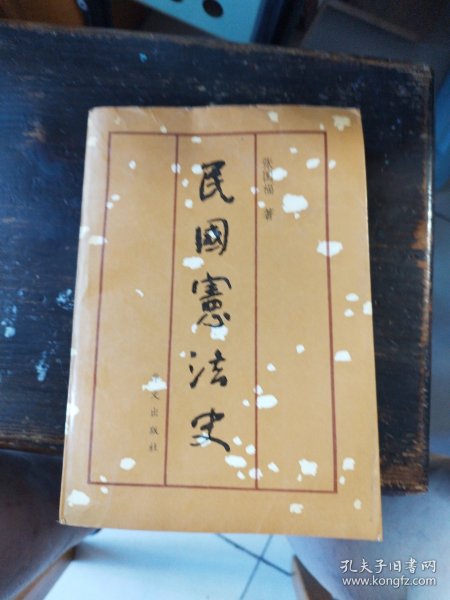 张国福 著
民國憲法史
华文出版社
孔夫子旧书网
www.kongfz.com